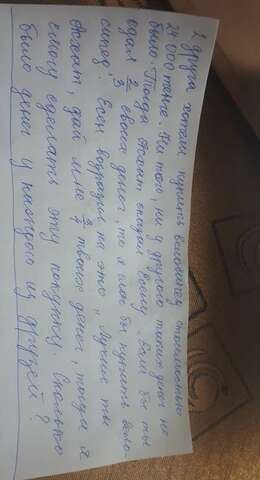 2 друга хотели купить велосипед стоимостью
24 000 тенге. Ни того, ни у другого таких денег не
было. Тогда Жомит сказал Есену: "Если бы ты
одал 2/3 своих денег, то я смог бы купить вело-
сипед". Есен возразил на это: "Лучше ты
Жомит, дай мне 2/7 твоих денег, тогда я
смогу сделать эту покупку. Сколько
было денег у каждого из друзей?